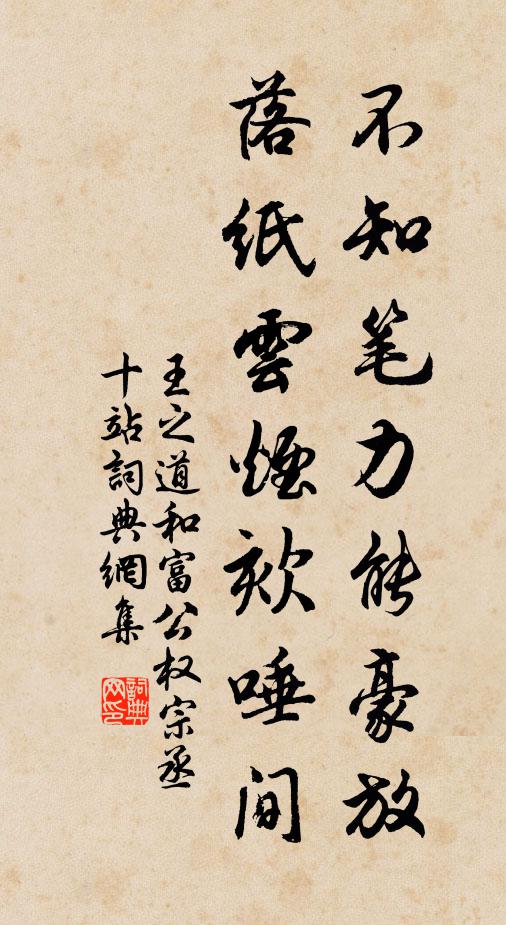 不知笔力能豪放
落纸雲煙欬唾间
王之道和富公权宗丞
十站詞典網集
詞典
网印